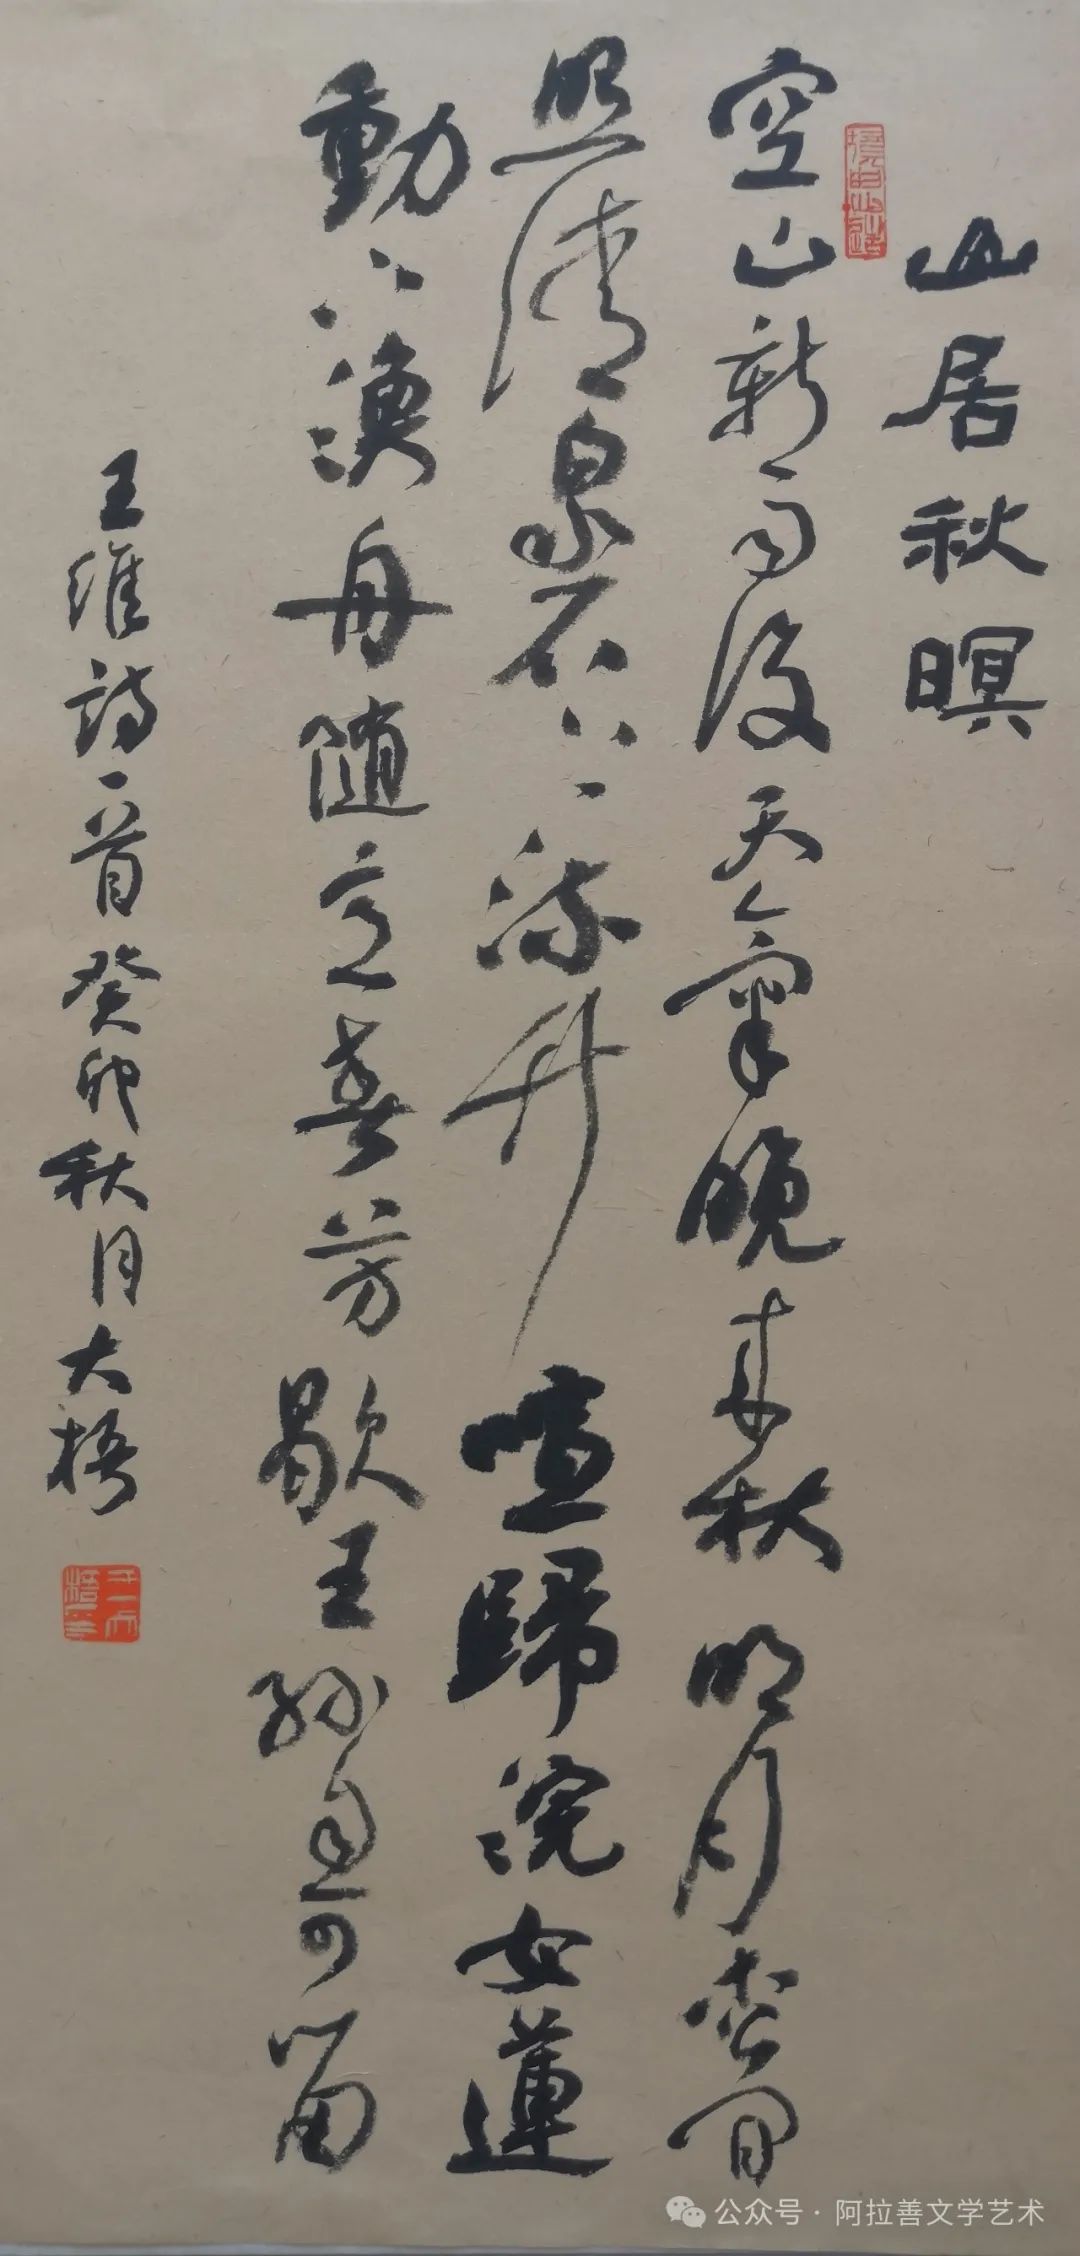 山居秋暝
空山新雨後天氣晚来秋明月松間
照清泉石上流竹喧歸浣女蓮
動下漁舟隨意春芳歇王孫自可留
王維詩一首癸卯秋月大梧
公众号·阿拉善文学艺术